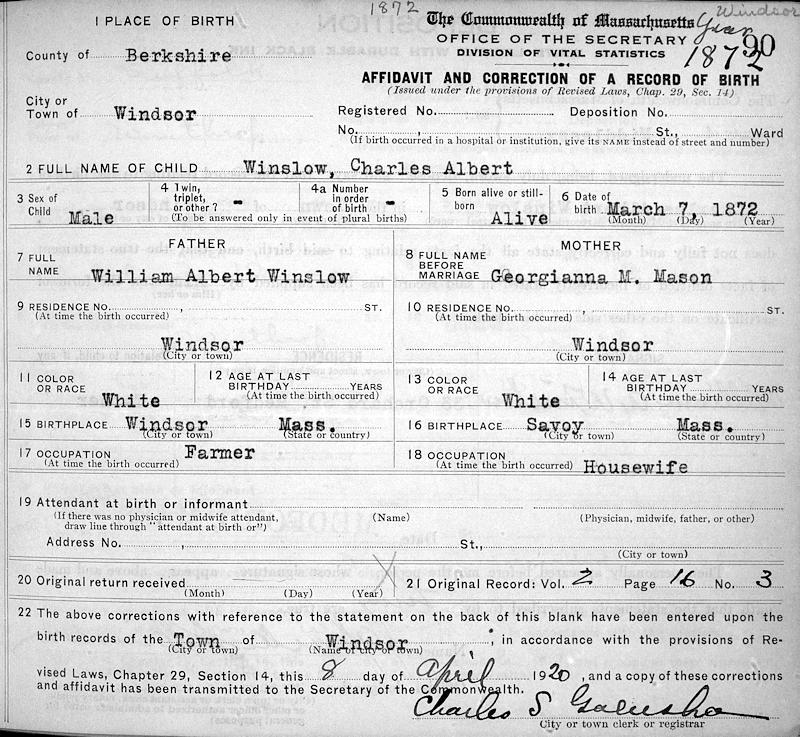 1872
Windsor
Year
1872
90
1 PLACE OF BIRTH
The Commonwealth of Massachusetts
OFFICE OF THE SECRETARY
DIVISION OF VITAL STATISTICS
County of Berkshire
AFFIDAVIT AND CORRECTION OF A RECORD OF BIRTH
(Issued under the provisions of Revised Laws, Chap. 29, Sec. 14)
City or
Town of Windsor
Registered No. Deposition No.
No. , St., Ward
(If birth occurred in a hospital or institution, give its NAME instead of street and number)
2 FULL NAME OF CHILD Winslow, Charles Albert
3 Sex of Child Male
4 Twin, triplet, or other? -
4a Number in order of birth -
(To be answered only in event of plural births)
5 Born alive or still-born Alive
6 Date of birth March 7, 1872
(Month) (Day) (Year)
FATHER
7 FULL NAME William Albert Winslow
MOTHER
8 FULL NAME BEFORE MARRIAGE Georgianna M. Mason
9 RESIDENCE NO. , ST.
(At time the birth occurred)
Windsor
(City or town)
10 RESIDENCE NO. , ST.
(At time the birth occurred)
Windsor
(City or town)
11 COLOR OR RACE White
12 AGE AT LAST BIRTHDAY YEARS
(At time the birth occurred)
13 COLOR OR RACE White
14 AGE AT LAST BIRTHDAY YEARS
(At time the birth occurred)
15 BIRTHPLACE Windsor Mass.
(City or town) (State or country)
16 BIRTHPLACE Savoy Mass.
(City or town) (State or country)
17 OCCUPATION Farmer
(At time the birth occurred)
18 OCCUPATION
(At time the birth occurred) Housewife
19 Attendant at birth or informant
(If there was no physician or midwife attendant, (Name) (Physician, midwife, father, or other)
draw line through "attendant at birth or")
Address No. , St.,
(City or town)
20 Original return received
(Month) (Day) (Year)
21 Original Record: Vol. 2 Page 16 No. 3
22 The above corrections with reference to the statement on the back of this blank have been entered upon the
birth records of the Town of Windsor, in accordance with the provisions of Re-
(City or town) (Name of city or town)
vised Laws, Chapter 29, Section 14, this 8 day of April 1920, and a copy of these corrections
and affidavit has been transmitted to the Secretary of the Commonwealth.
Charles S
City or town clerk or registrar